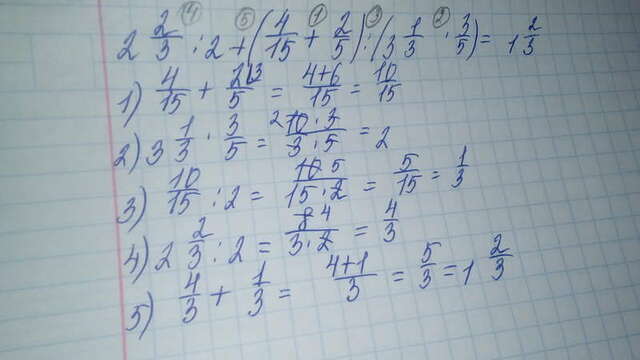 ④ ⑤ ① ③ ②
2 2/3 : 2 + (4/15 + 2/5) : (3 1/3 · 3/5) = 1 2/3
1) 4/15 + 2/5 |3 = 4+6/15 = 10/15
2) 3 1/3 · 3/5 = 2 10·3/3·5 = 2
3) 10/15 : 2 = 10 5/15·2 = 5/15 = 1/3
4) 2 2/3 : 2 = 8 4/3·2 = 4/3
5) 4/3 + 1/3 = 4+1/3 = 5/3 = 1 2/3